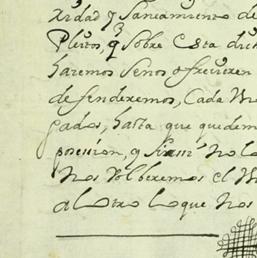 ridad y Saneamiento de
Pleitos, q sobre Esta di
haremos Se nos ofrecieren
defenderemos, Cada
gados, hasta que quedem
posesion, q si asi no lo
nos Volberemos el
al otro lo que nos